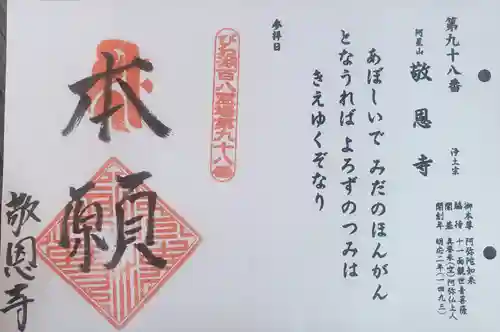 第九十八番
阿星山
敬恩寺
浄土宗
御本尊 阿弥陀如来
脇持 十一面観世音菩薩
開創年 明応二年(一四九三)
あぼしいで みだのほんがん
となうれば よろずのつみは
きえゆくぞなり
参拝日
びわ湖百八霊場第九十八番
本願
敬恩寺